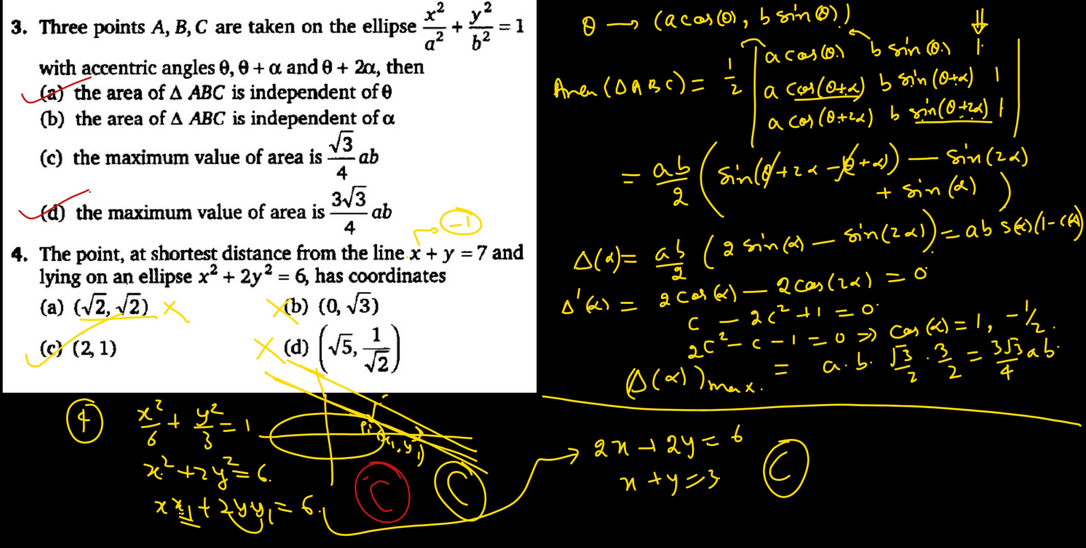 3. Three points A, B, C are taken on the ellipse x²/a² + y²/b² = 1
with accentric angles θ, θ + α and θ + 2α, then
(a) the area of Δ ABC is independent of θ
(b) the area of Δ ABC is independent of α
(c) the maximum value of area is √3/4 ab
(d) the maximum value of area is 3√3/4 ab
-1
4. The point, at shortest distance from the line x + y = 7 and
lying on an ellipse x² + 2y² = 6, has coordinates
(a) (√2, √2) x (b) (0, √3)
(c) (2, 1) (d) (√5, 1/√2)
θ → (a cos(θ), b sin(θ))
Area(ΔABC) = 1/2 | a cos(θ) b sin(θ) 1
a cos(θ+α) b sin(θ+α) 1
a cos(θ+2α) b sin(θ+2α) 1 |
= ab/2 ( sin(θ+2α-θ+α) — sin(2α)
+ sin(α) )
Δ(α) = ab/2 ( 2 sin(α) — sin(2α) ) = ab s(α)(1-c(α)
Δ'(α) = 2cos(α) — 2cos(2α) = 0
c - 2c² + 1 = 0
2c² - c - 1 = 0 ⇒ cos(α) = 1, -1/2.
(Δ(α))max. = a.b. √3/2 . 3/2 = 3√3/4 ab.
4 x²/6 + y²/3 = 1
x² + 2y² = 6.
xx₁ + 2yy₁ = 6.
P (x₁, y₁)
C C
→ 2x + 2y = 6
x + y = 3 C